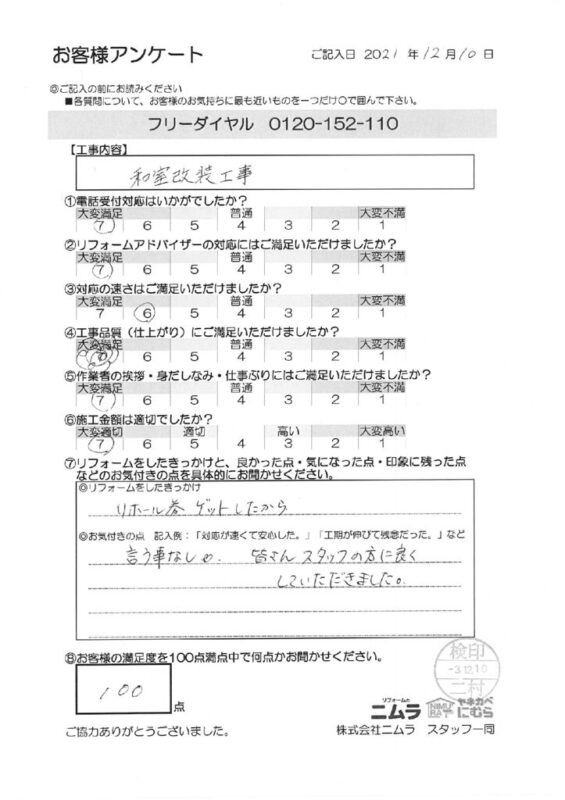 お客様アンケート
ご記入日 2021年12月10日
◎ご記入の前にお読みください
■各質問について、お客様のお気持ちに最も近いものを一つだけ○で囲んで下さい。
フリーダイヤル 0120-152-110
【工事内容】
和室改装工事
①電話受付対応はいかがでしたか?
大変満足 普通 大変不満
7 6 5 4 3 2 1
②リフォームアドバイザーの対応にはご満足いただけましたか?
大変満足 普通 大変不満
7 6 5 4 3 2 1
③対応の速さはご満足いただけましたか?
大変満足 普通 大変不満
7 6 5 4 3 2 1
④工事品質(仕上がり)にご満足いただけましたか?
大変満足 普通 大変不満
7 6 5 4 3 2 1
⑤作業者の挨拶・身だしなみ・仕事ぶりにはご満足いただけましたか?
大変満足 普通 大変不満
7 6 5 4 3 2 1
⑥施工金額は適切でしたか?
大変適切 適切 高い 大変高い
7 6 5 4 3 2 1
⑦リフォームをしたきっかけと、良かった点・気になった点・印象に残った点
などのお気付きの点を具体的にお聞かせください。
◎リフォームをしたきっかけ
リホール券 ゲットしたから
◎お気付きの点 記入例:「対応が速くて安心した。」「工期が伸びて残念だった。」など
言う事なしや 皆さんスタッフの方に良く
していただきました。
⑧お客様の満足度を100点満点中で何点かお聞かせください。
100 点
検印
-3.12.10
二村
リフォームの ニムラ NIMURA ヤネカベ にむら
ご協力ありがとうございました。 株式会社ニムラ スタッフ一同